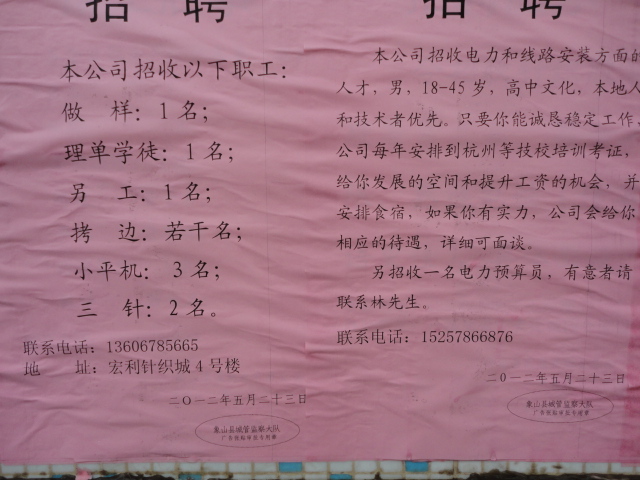 招 聘
本公司招收以下职工：
做 样：1名；
理单学徒：1名；
另 工：1名；
拷 边：若干名；
小平机：3名；
三 针：2名。
联系电话：13606785665
地 址：宏利针织城4号楼
二〇一二年五月二十三日
象山县城管监察大队
广告张贴审批专用章
招 聘
本公司招收电力和线路安装方面的
人才，男，18-45岁，高中文化，本地人
和技术者优先。只要你能诚恳稳定工作，
公司每年安排到杭州等技校培训考证，
给你发展的空间和提升工资的机会，并
安排食宿，如果你有实力，公司会给你
相应的待遇，详细可面谈。
另招收一名电力预算员，有意者请
联系林先生。
联系电话：15257866876
二〇一二年五月二十三日
象山县城管监察大队
广告张贴审批专用章